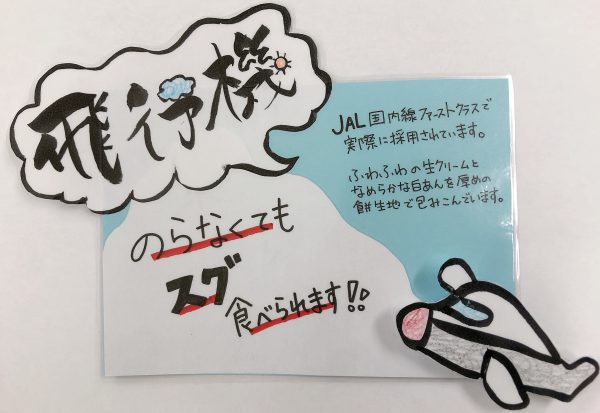 飛行機
のらなくても
スグ
食べられます!!
JAL国内線ファーストクラスで
実際に採用されています。
ふわふわの生クリームと
なめらかな白あんを厚めの
餅生地で包みこんでいます。